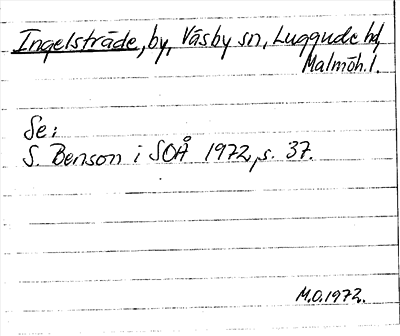 Ingelsträde, by, Väsby sn, Luggude hd,
Malmöh. l.
Se:
S. Benson i SOÅ 1972, s. 37.
M.O. 1972.